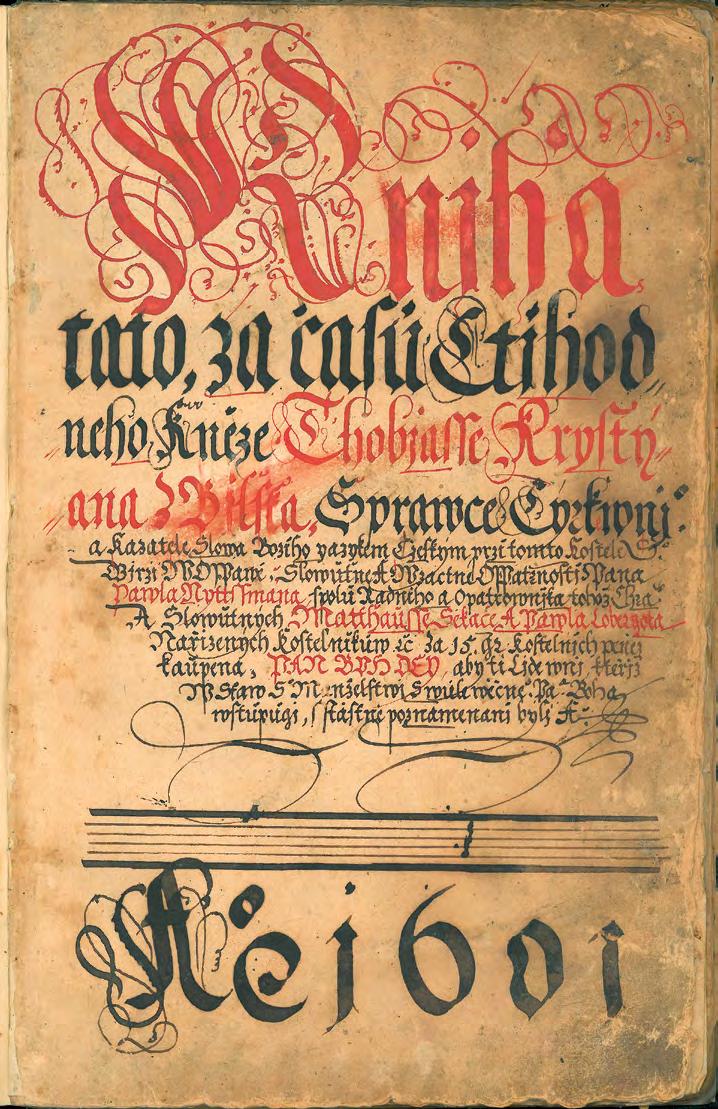 Kniha
tato, za časů Ctihod„
„neho Kněze Thobiasse Krysty„
„ana z Bilska, Sprawce Cyrkwnj:
a Kazatele Slowa Božiho yazykem Czeskym przi tomto Kostele S:
Girzi W Oppawě, Slowutne A Wzactne Oppatrnosti Pana
Pawla spolu Radniho a Opatrownika tohož
A Slowutnych Matthausse Sekace A Pawla
Nařizenych Kostelnikuw &c za 15 gr Kostelnich peněz
kaupena, PAN BUH DEY, aby ti Lide wnj, kteřiž
W Staw S: Manželstwi
wstupugi, sstastně poznamenani byli A:
Ao 1601